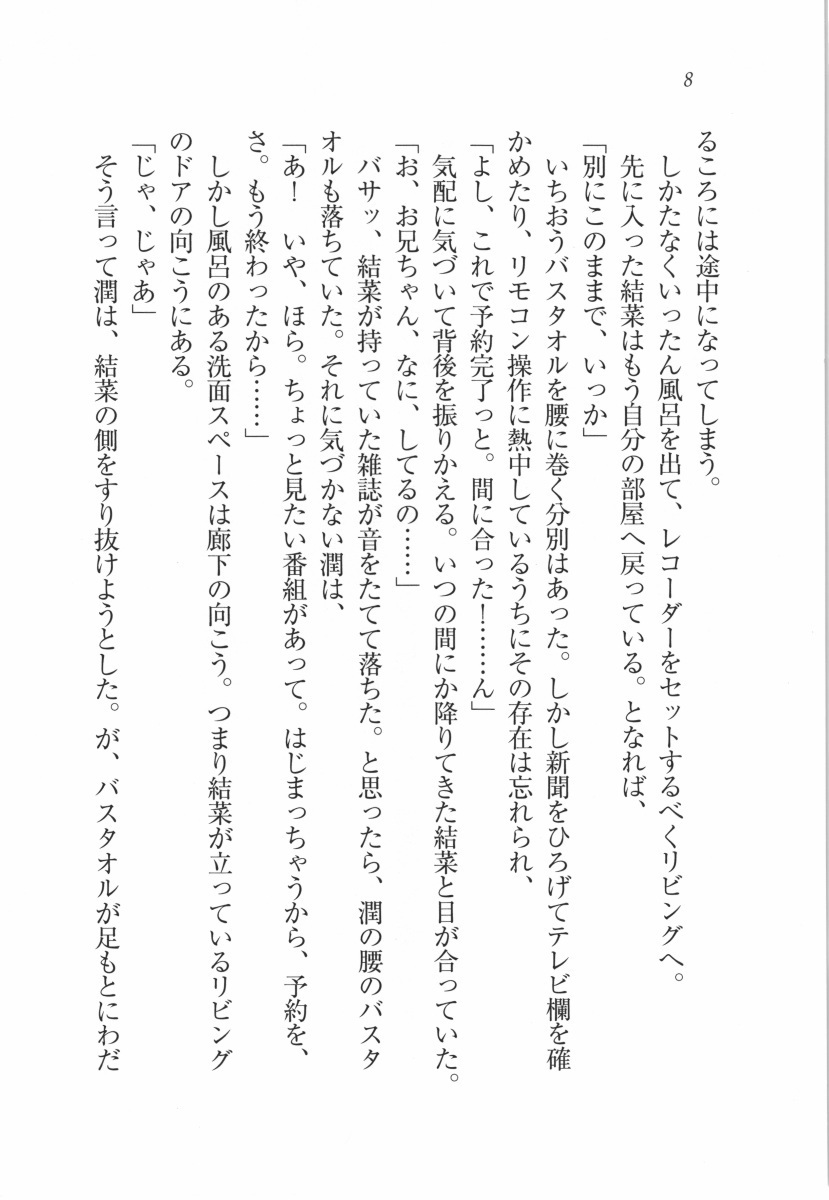 8
るころには途中になってしまう。
しかたなくいったん風呂を出て、レコーダーをセットするべくリビングへ。
先に入った結菜はもう自分の部屋へ戻っている。となれば、
「別にこのままで、いっか」
いちおうバスタオルを腰に巻く分別はあった。しかし新聞をひろげてテレビ欄を確
かめたり、リモコン操作に熱中しているうちにその存在は忘れられ、
「よし、これで予約完了っと。間に合った！……ん」
気配に気づいて背後を振りかえる。いつの間にか降りてきた結菜と目が合っていた。
「お、お兄ちゃん、なに、してるの……」
バサッ、結菜が持っていた雑誌が音をたてて落ちた。と思ったら、潤の腰のバスタ
オルも落ちていた。それに気づかない潤は、
「あ！　いや、ほら。ちょっと見たい番組があって。はじまっちゃうから、予約を、
さ。もう終わったから……」
しかし風呂のある洗面スペースは廊下の向こう。つまり結菜が立っているリビング
のドアの向こうにある。
「じゃ、じゃあ」
そう言って潤は、結菜の側をすり抜けようとした。が、バスタオルが足もとにわだ